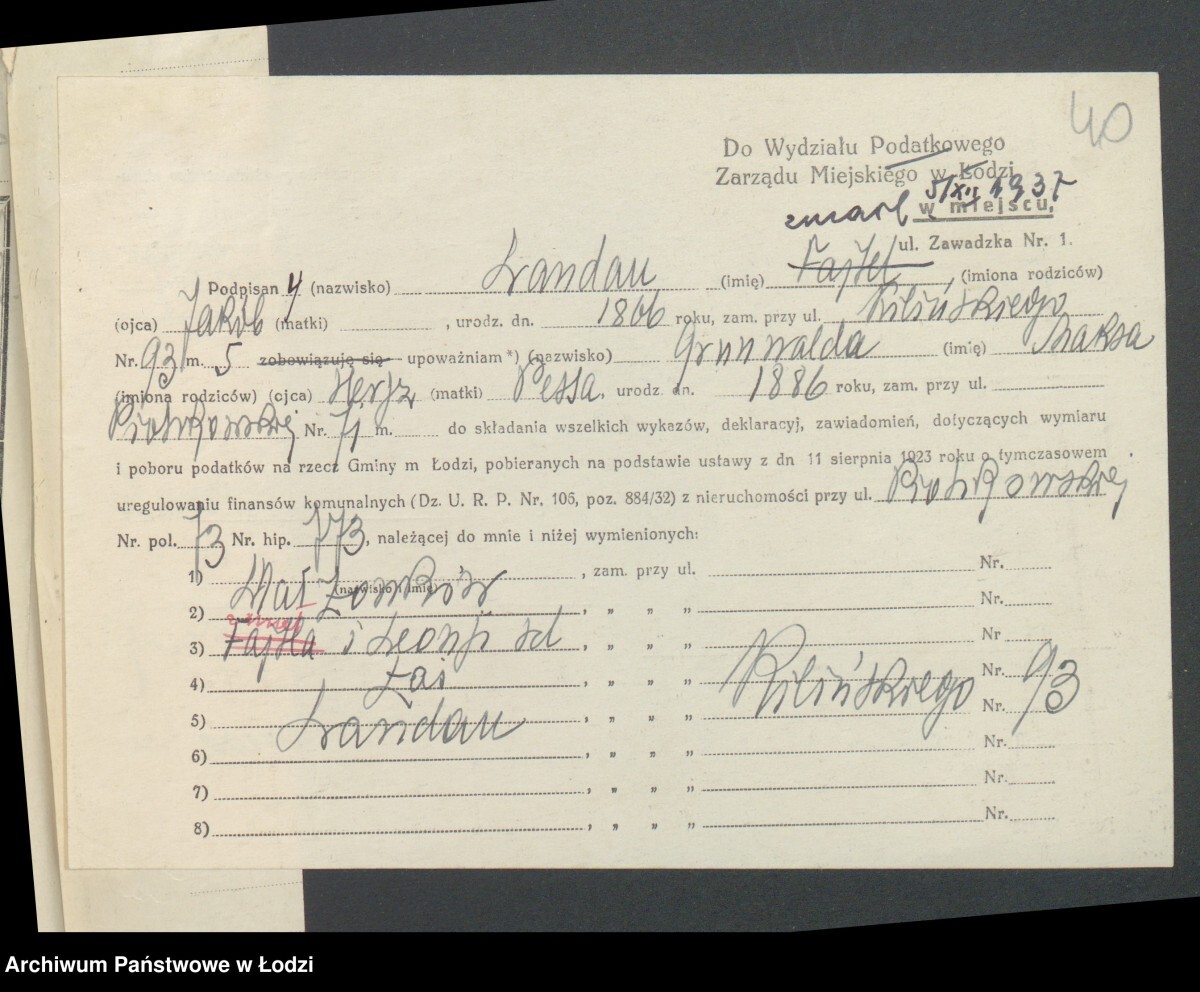 40
Do Wydziału Podatkowego
Zarządu Miejskiego w Łodzi
zmarł 5/XII 1937
w miejscu,
ul. Zawadzka Nr. 1.
Podpisany (nazwisko) Landau (imię) Fajtel, (imiona rodziców)
(ojca) Jakób (matki) , urodz. dn. 1866 roku, zam. przy ul. Kilińskiego
Nr. 93 m. 5 zobowiązuję się upoważniam *) (nazwisko) Grunwalda (imię) Maksa
(imiona rodziców) (ojca) Hersz (matki) Pessa, urodz. dn. 1886 roku, zam. przy ul.
Piotrkowskiej Nr. 71 m. do składania wszelkich wykazów, deklaracyj, zawiadomień, dotyczących wymiaru
i poboru podatków na rzecz Gminy m Łodzi, pobieranych na podstawie ustawy z dn 11 sierpnia 1923 roku o tymczasowem
uregulowaniu finansów komunalnych (Dz. U. R. P. Nr. 106, poz. 884/32) z nieruchomości przy ul. Piotrkowskiej
Nr. pol. 73 Nr. hip. 773, należącej do mnie i niżej wymienionych:
1) , zam. przy ul. Nr.
(nazwisko i imię)
2) Małżonków , „ „ „ Nr.
3) Fajtla i , „ „ „ Nr
4) , „ „ „ Kilińskiego Nr. 93
5) Landau , „ „ „ Nr.
6) , „ „ „ Nr.
7) , „ „ „ Nr.
8) , „ „ „ Nr.
Archiwum Państwowe w Łodzi